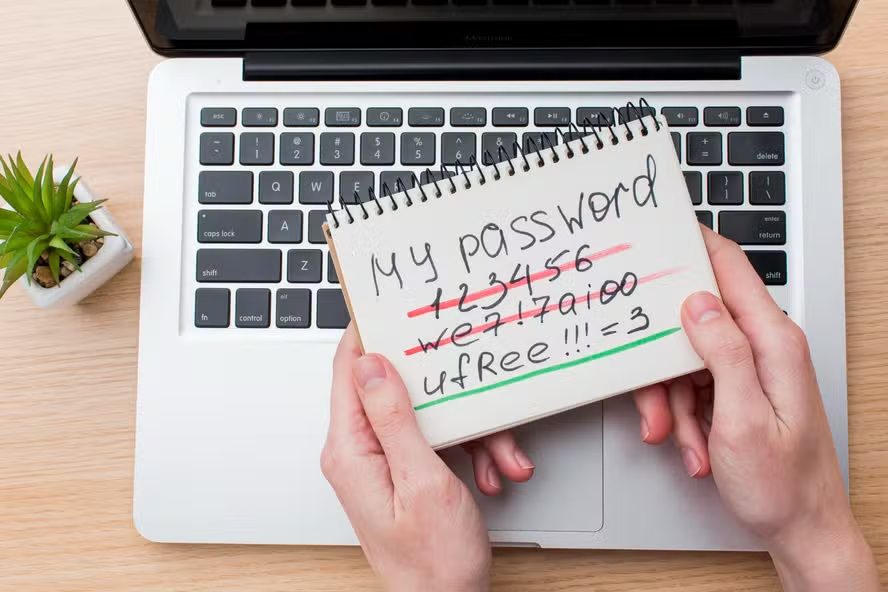 esc
~ ` ! 1 @ 2 # 3 $ 4 % 5 ^ 6 & + = delete
tab Q W E
caps lock A enter return
shift Z shift
fn control alt option
My password
123456
we7!7aioo
ufRee!!!=3